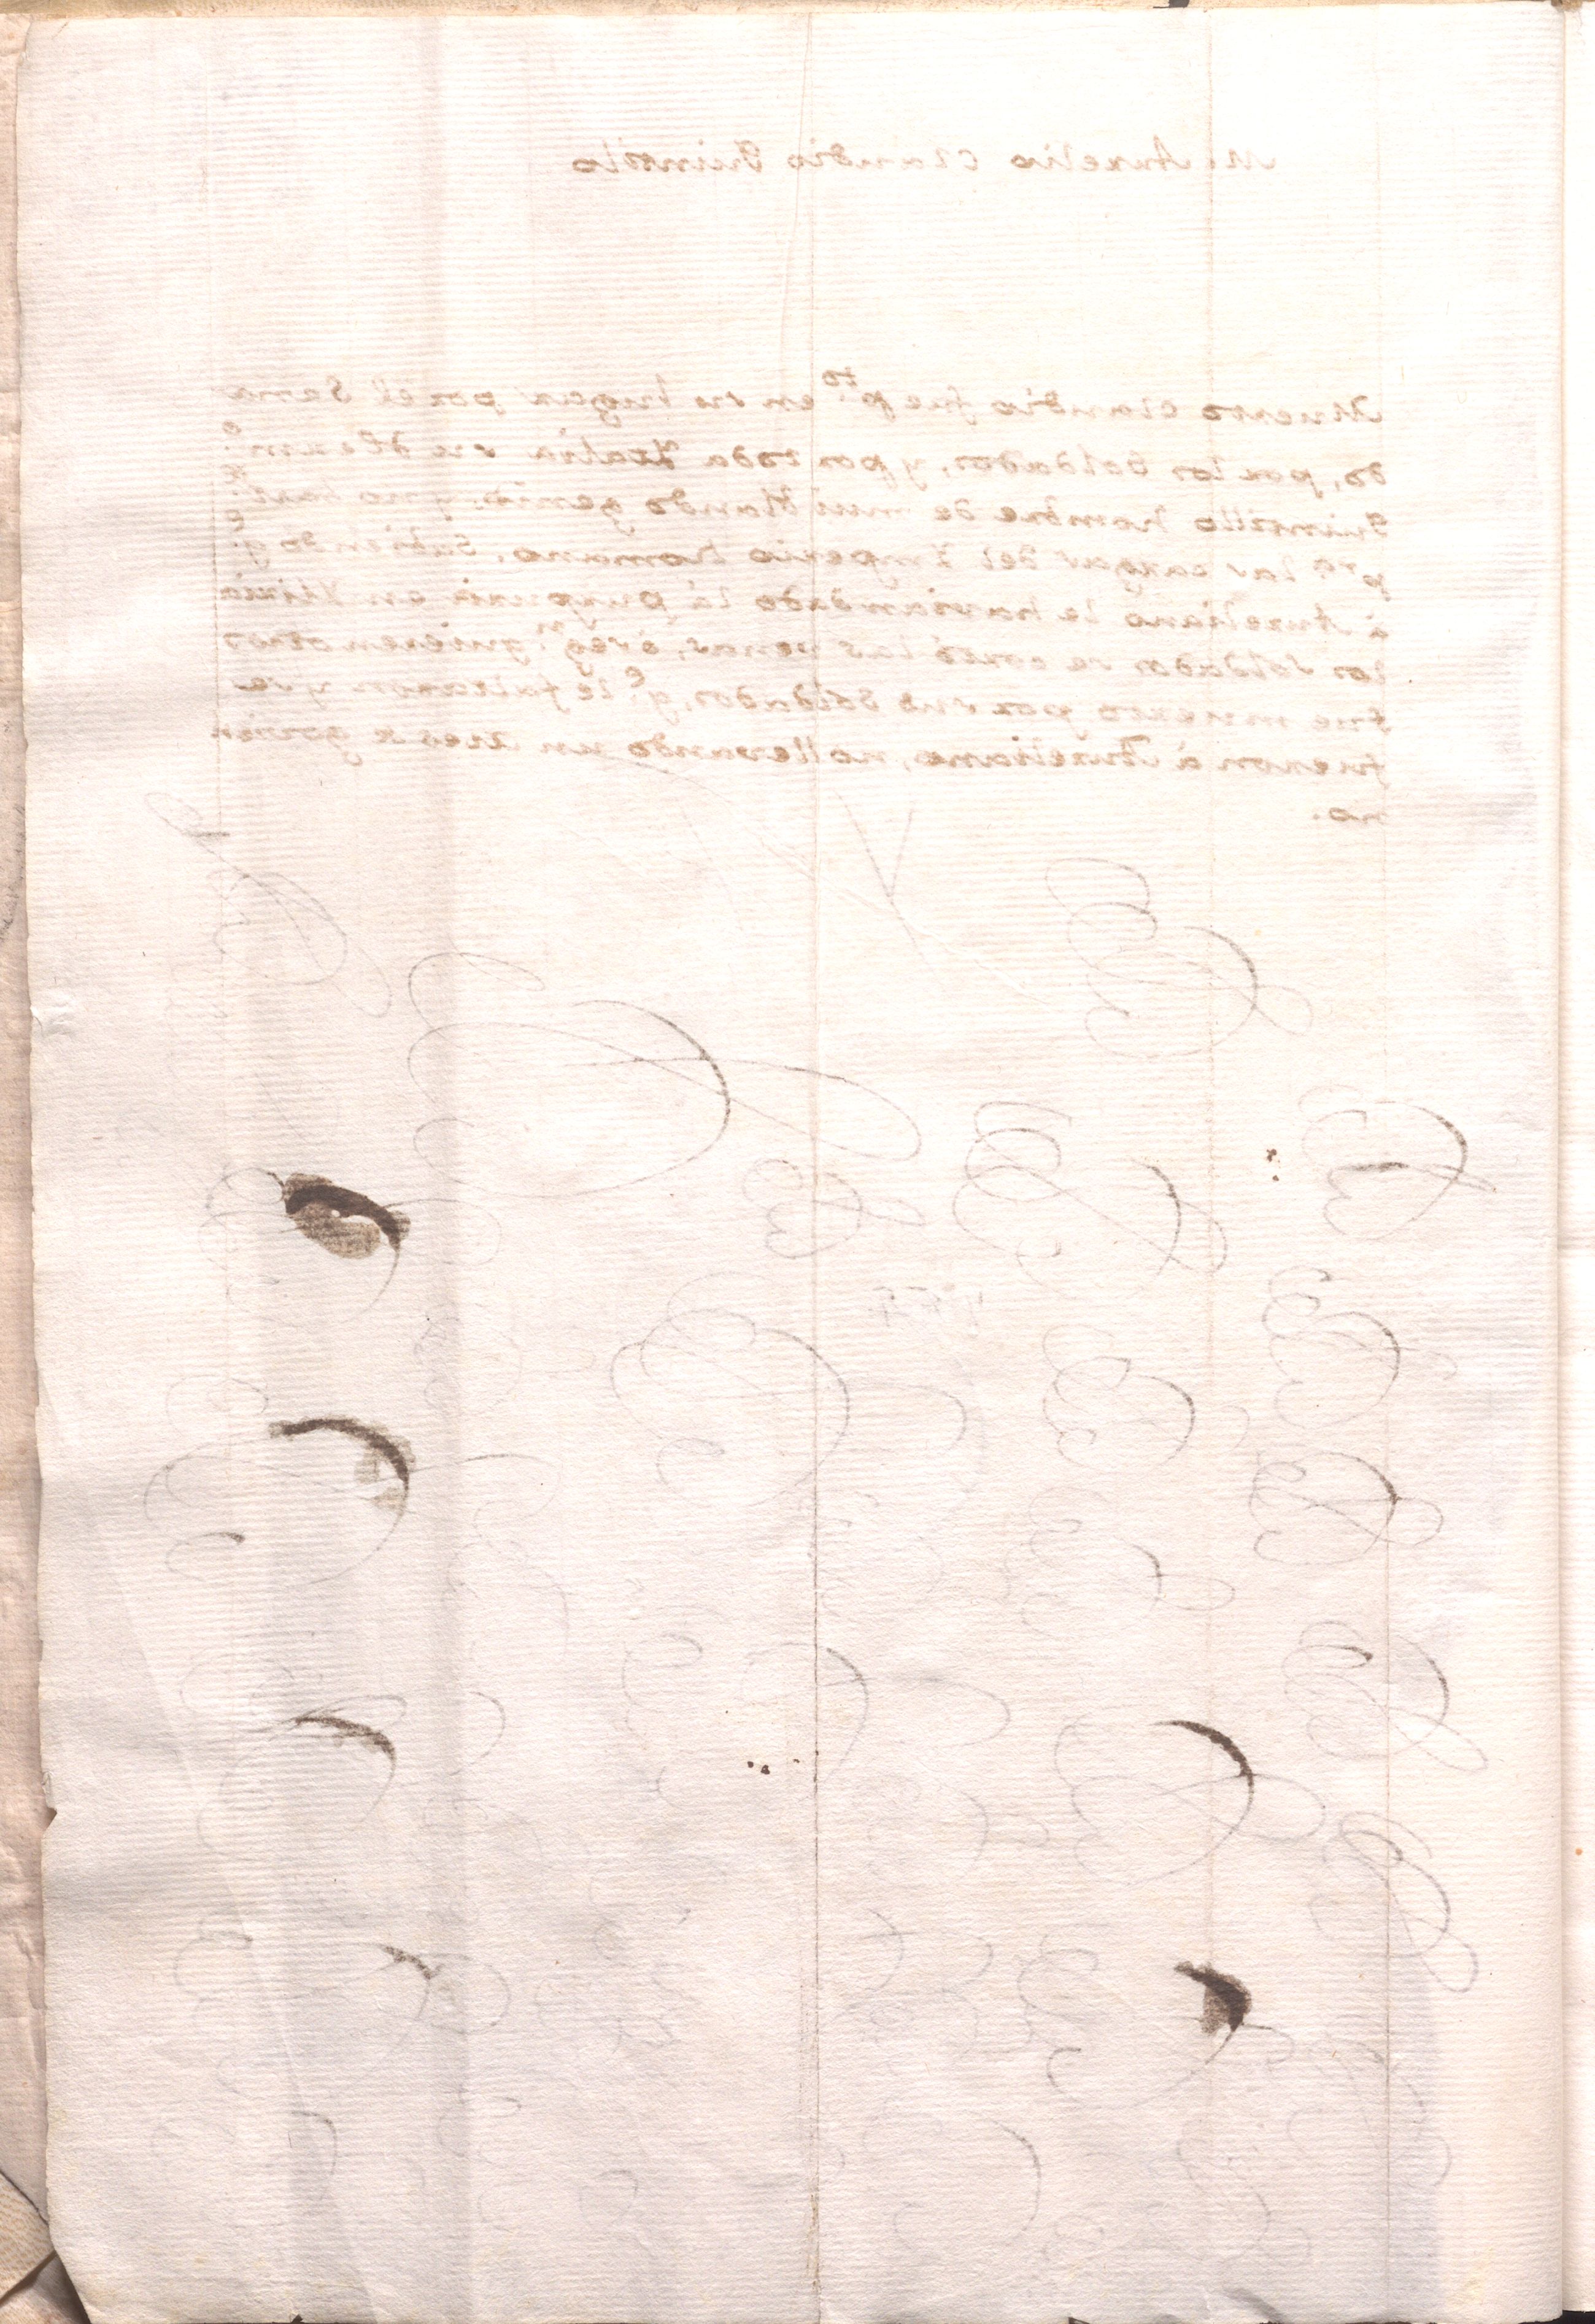 M. Aurelio Claudio Quintilo
Muerto Claudio fue p.to en su lugar por el Sena
do, por los Soldados, y por toda Italia su
Quintillo hombre de mui blando genio, y no bast.e
p.ra las cargas del Imperio Romano. Sabiendo q.e
à Aureliano le havian dado la en Iliria
los soldados se cortó las venas, ó seg.n quieren otros
fue muerto por sus Soldados, q.e le faltaron y se
fueron à Aureliano, no llevando un mes de govier
no.